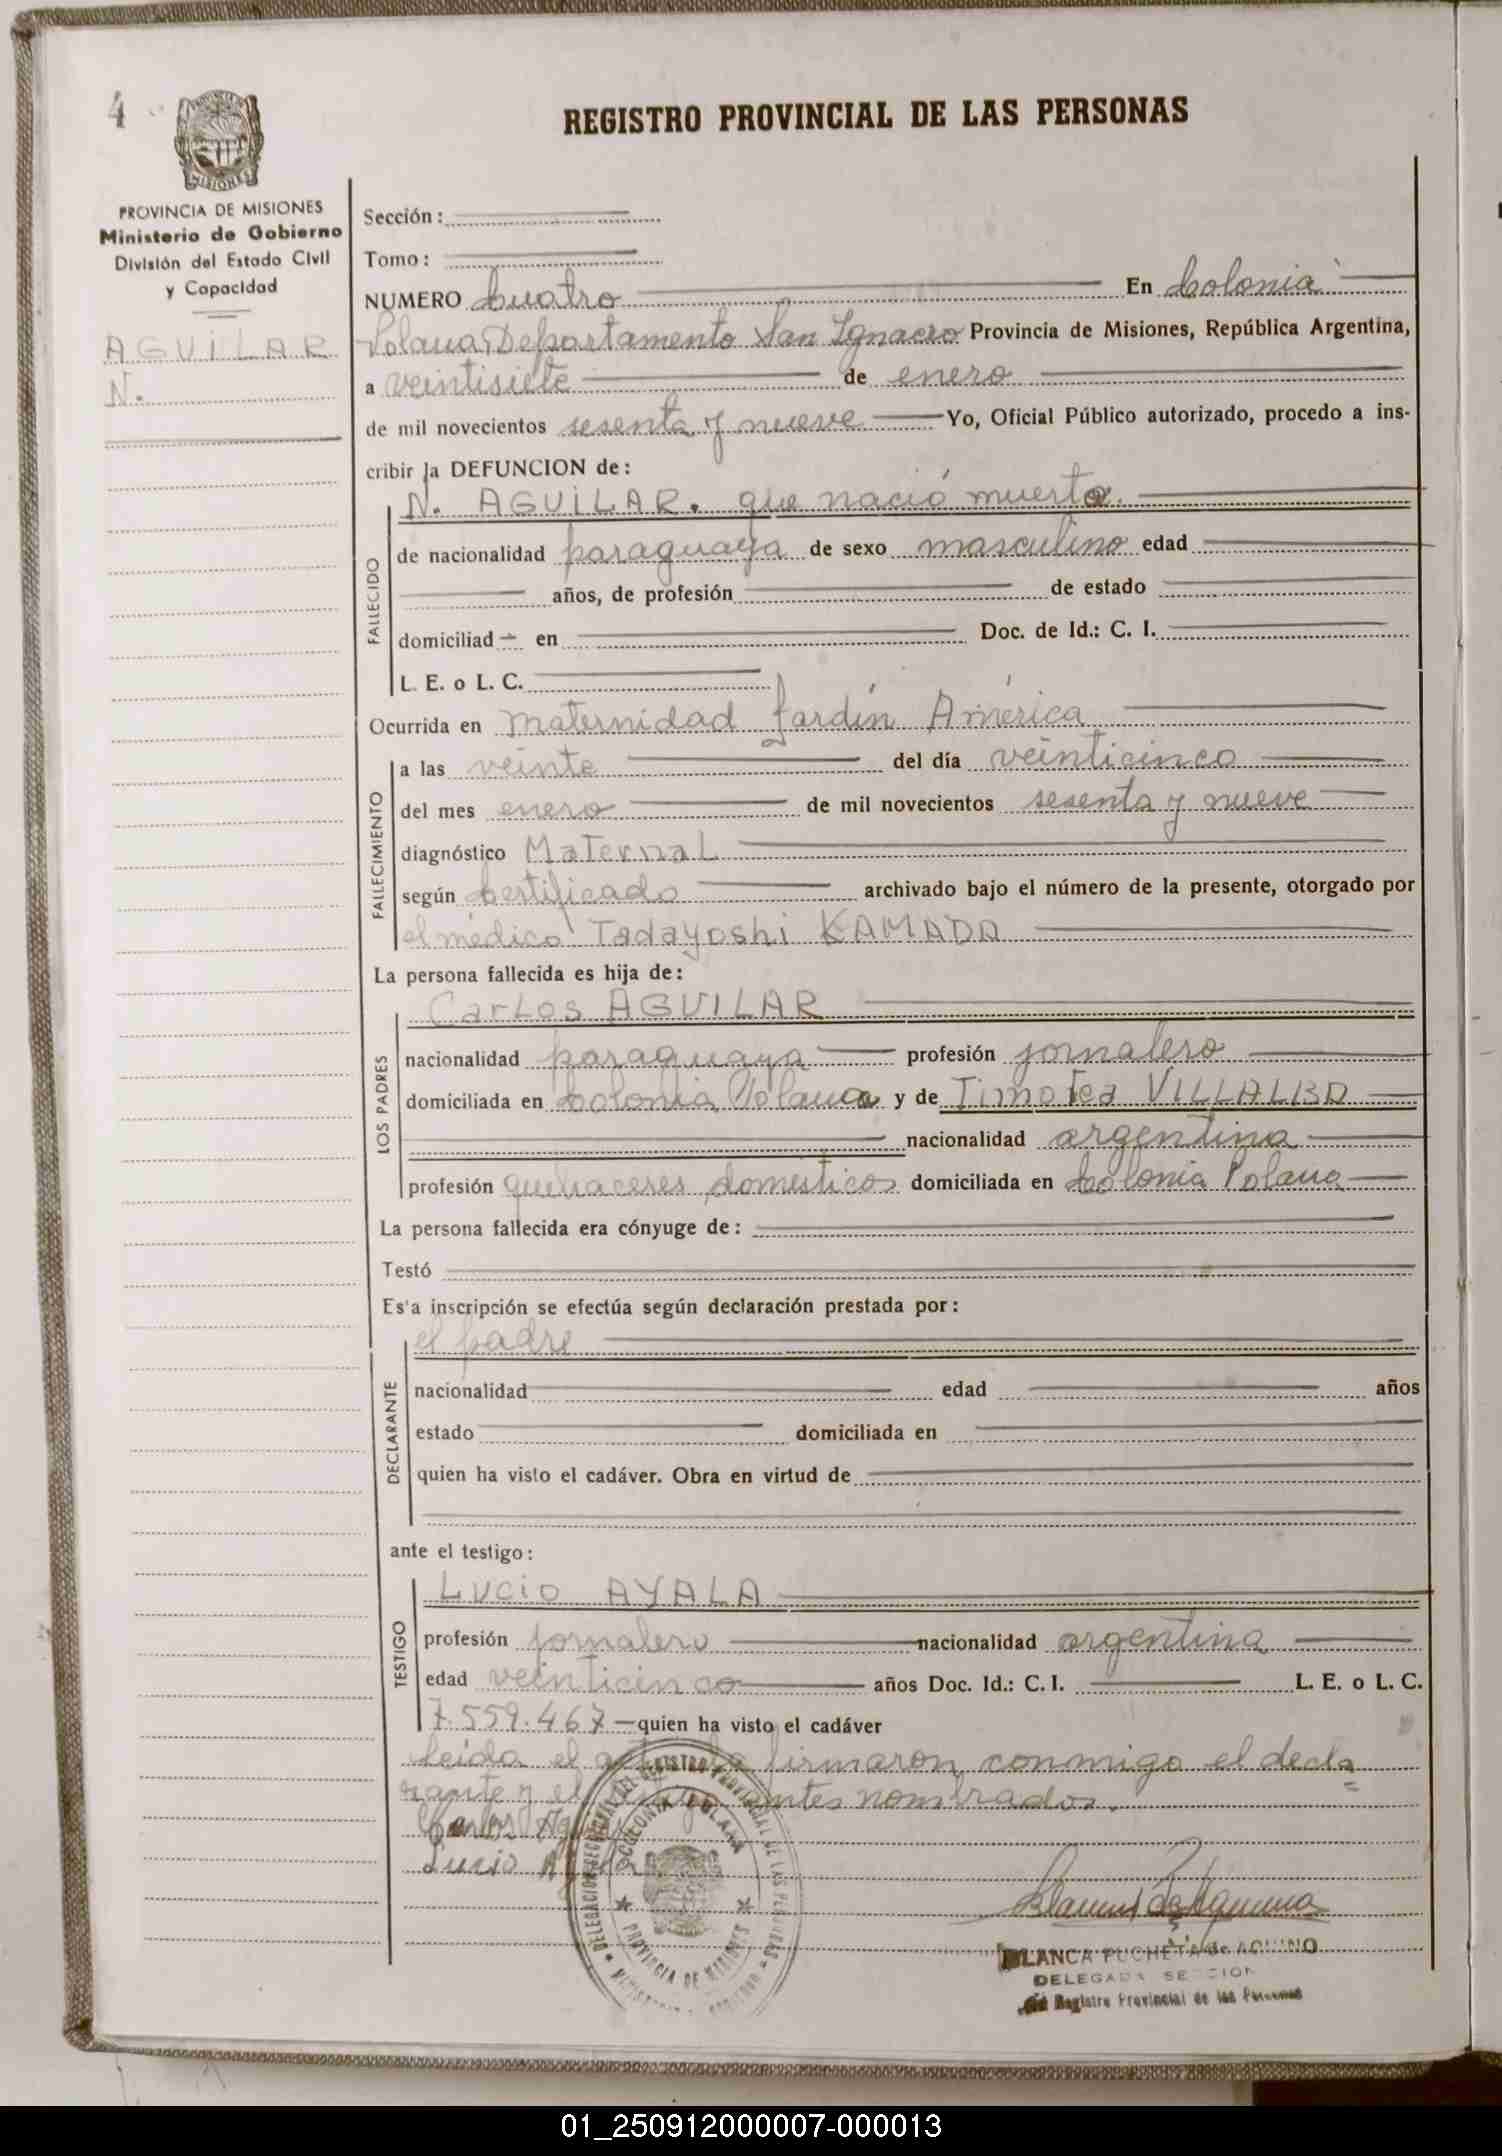 4
MISIONES
REGISTRO PROVINCIAL DE LAS PERSONAS
PROVINCIA DE MISIONES
Ministerio de Gobierno
División del Estado Civil
y Capacidad
AGUILAR
N.
Sección:
Tomo:
NUMERO Cuatro En Colonia
Polana, Departamento San Ignacio Provincia de Misiones, República Argentina,
a veintisiete de enero
de mil novecientos sesenta y nueve Yo, Oficial Público autorizado, procedo a ins-
cribir la DEFUNCION de:
N. AGUILAR. que nació muerto.
FALLECIDO
de nacionalidad paraguaya de sexo masculino edad
años, de profesión de estado
domiciliad en Doc. de Id.: C. I.
L. E. o L. C.
Ocurrida en Maternidad Jardín América
FALLECIMIENTO
a las veinte del día veinticinco
del mes enero de mil novecientos sesenta y nueve
diagnóstico Maternal
según Certificado archivado bajo el número de la presente, otorgado por
el médico Tadayoshi KAMADA
La persona fallecida es hija de:
LOS PADRES
Carlos AGUILAR
nacionalidad paraguaya profesión jornalero
domiciliada en Colonia Polana y de Timotea VILLALBA
nacionalidad argentina
profesión quehaceres domésticos domiciliada en Colonia Polana
La persona fallecida era cónyuge de:
Testó
Es'a inscripción se efectúa según declaración prestada por:
DECLARANTE
el padre
nacionalidad edad años
estado domiciliada en
quien ha visto el cadáver. Obra en virtud de
ante el testigo:
TESTIGO
Lucio AYALA
profesión jornalero nacionalidad argentina
edad veinticinco años Doc. Id.: C. I. L. E. o L. C.
7.559.467 quien ha visto el cadáver
Leida el acta la firmaron conmigo el decla
rante y el antes nombrados.
Carlos
Lucio
DELEGACION SECCIONAL DEL REGISTRO PROVINCIAL DE LAS PERSONAS
COLONIA POLANA
PROVINCIA DE MISIONES
BLANCA PUCHETA de AQUINO
DELEGADA SECCION
del Registro Provincial de las Personas
01_250912000007-000013